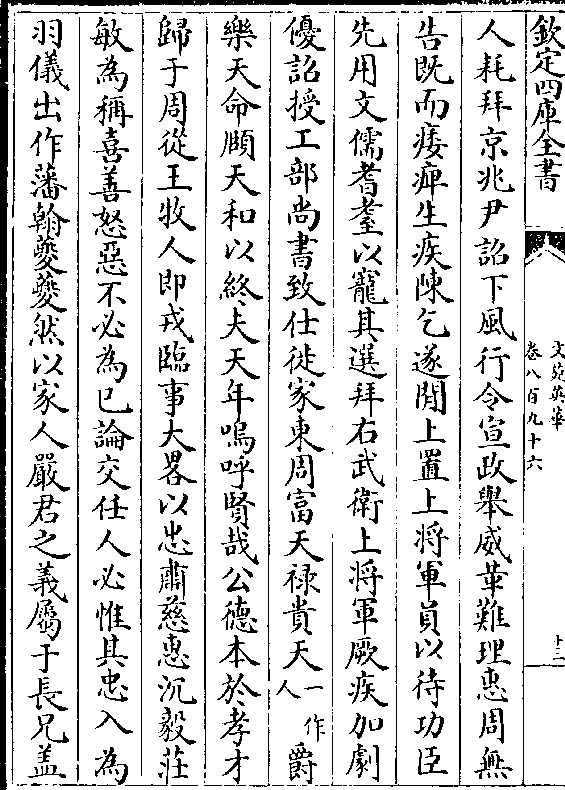 欽定四庫全書
文苑英華
卷八百九十六
十三
人耗拜京兆尹詔下風行令宣政舉威華難理惠周無
告既而痿痺生疾陳乞遂閒上置上將軍員以待功臣
先用文儒耆耋以寵其選拜右武衛上將軍厥疾加劇
優詔授工部尚書致仕徙家東周富天禄貴天一作人爵
樂天命頤天和以終夫天年嗚呼賢哉公德本於孝才
歸于周從王牧人即戎臨事大畧以忠肅慈惠沉毅莊
敏為稱喜善怒惡不必為己論交任人必惟其忠入為
羽儀出作藩翰夔夔然以家人嚴君之義屬于長兄盖